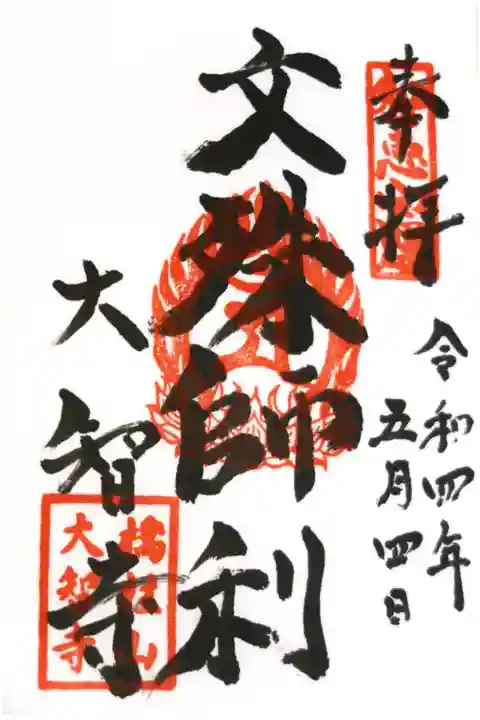 奉拝
令和四年
五月四日
文殊師利
大智寺
大智寺